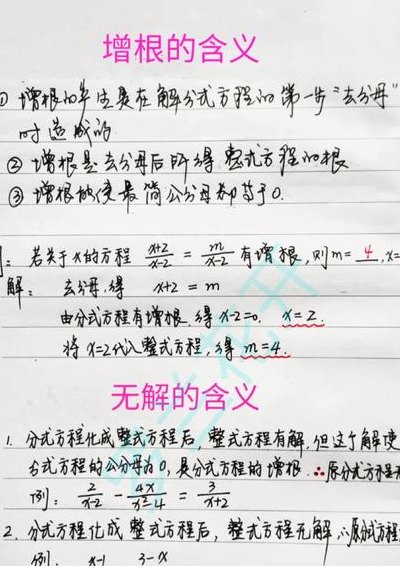 增根的含义
① 增根的产生是在解分式方程的第一步"去分母"
时造成的
② 增根是去分母后所得整式方程的根
③ 增根能使最简公分母等于0.
若关于x的方程 (x+2)/(x-2) = m/(x-2) 有增根,则m= 4 ,x=
解: 去分母,得 x+2 = m
由分式方程有增根,得 x-2=0, x=2.
将 x=2代入整式方程,得 m=4.
无解的含义
1. 分式方程化成整式方程后,整式方程有解,但这个解使
分式方程的公分母为0,是分式方程的增根.∴原分式方程
例: 2/(x-2) - 4x/(x²-4) = 3/(x+2)
2. 分式方程化成整式方程后,整式方程无解,∴原分式方程
例. x-1 3-x